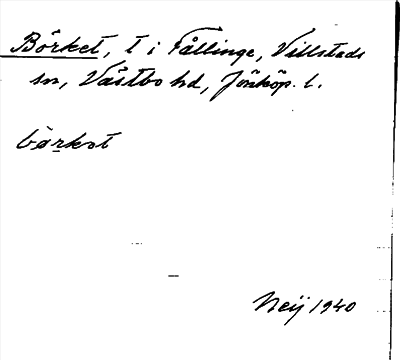 Börket, t i Fållinge, Villstads
sn, Västbo hd, Jönköp. l.
bərkət
Neij 1940